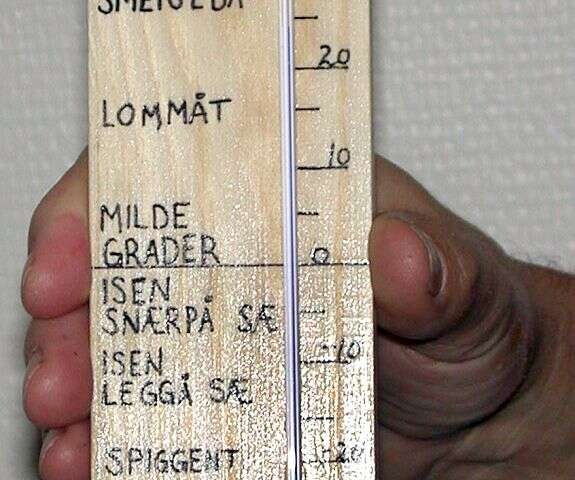 20
LOMMÅT
10
MILDE
GRADER
0
ISEN
SNÆRPÅ SÆ
-10
ISEN
LEGGÅ SÆ
SPIGGENT
-20